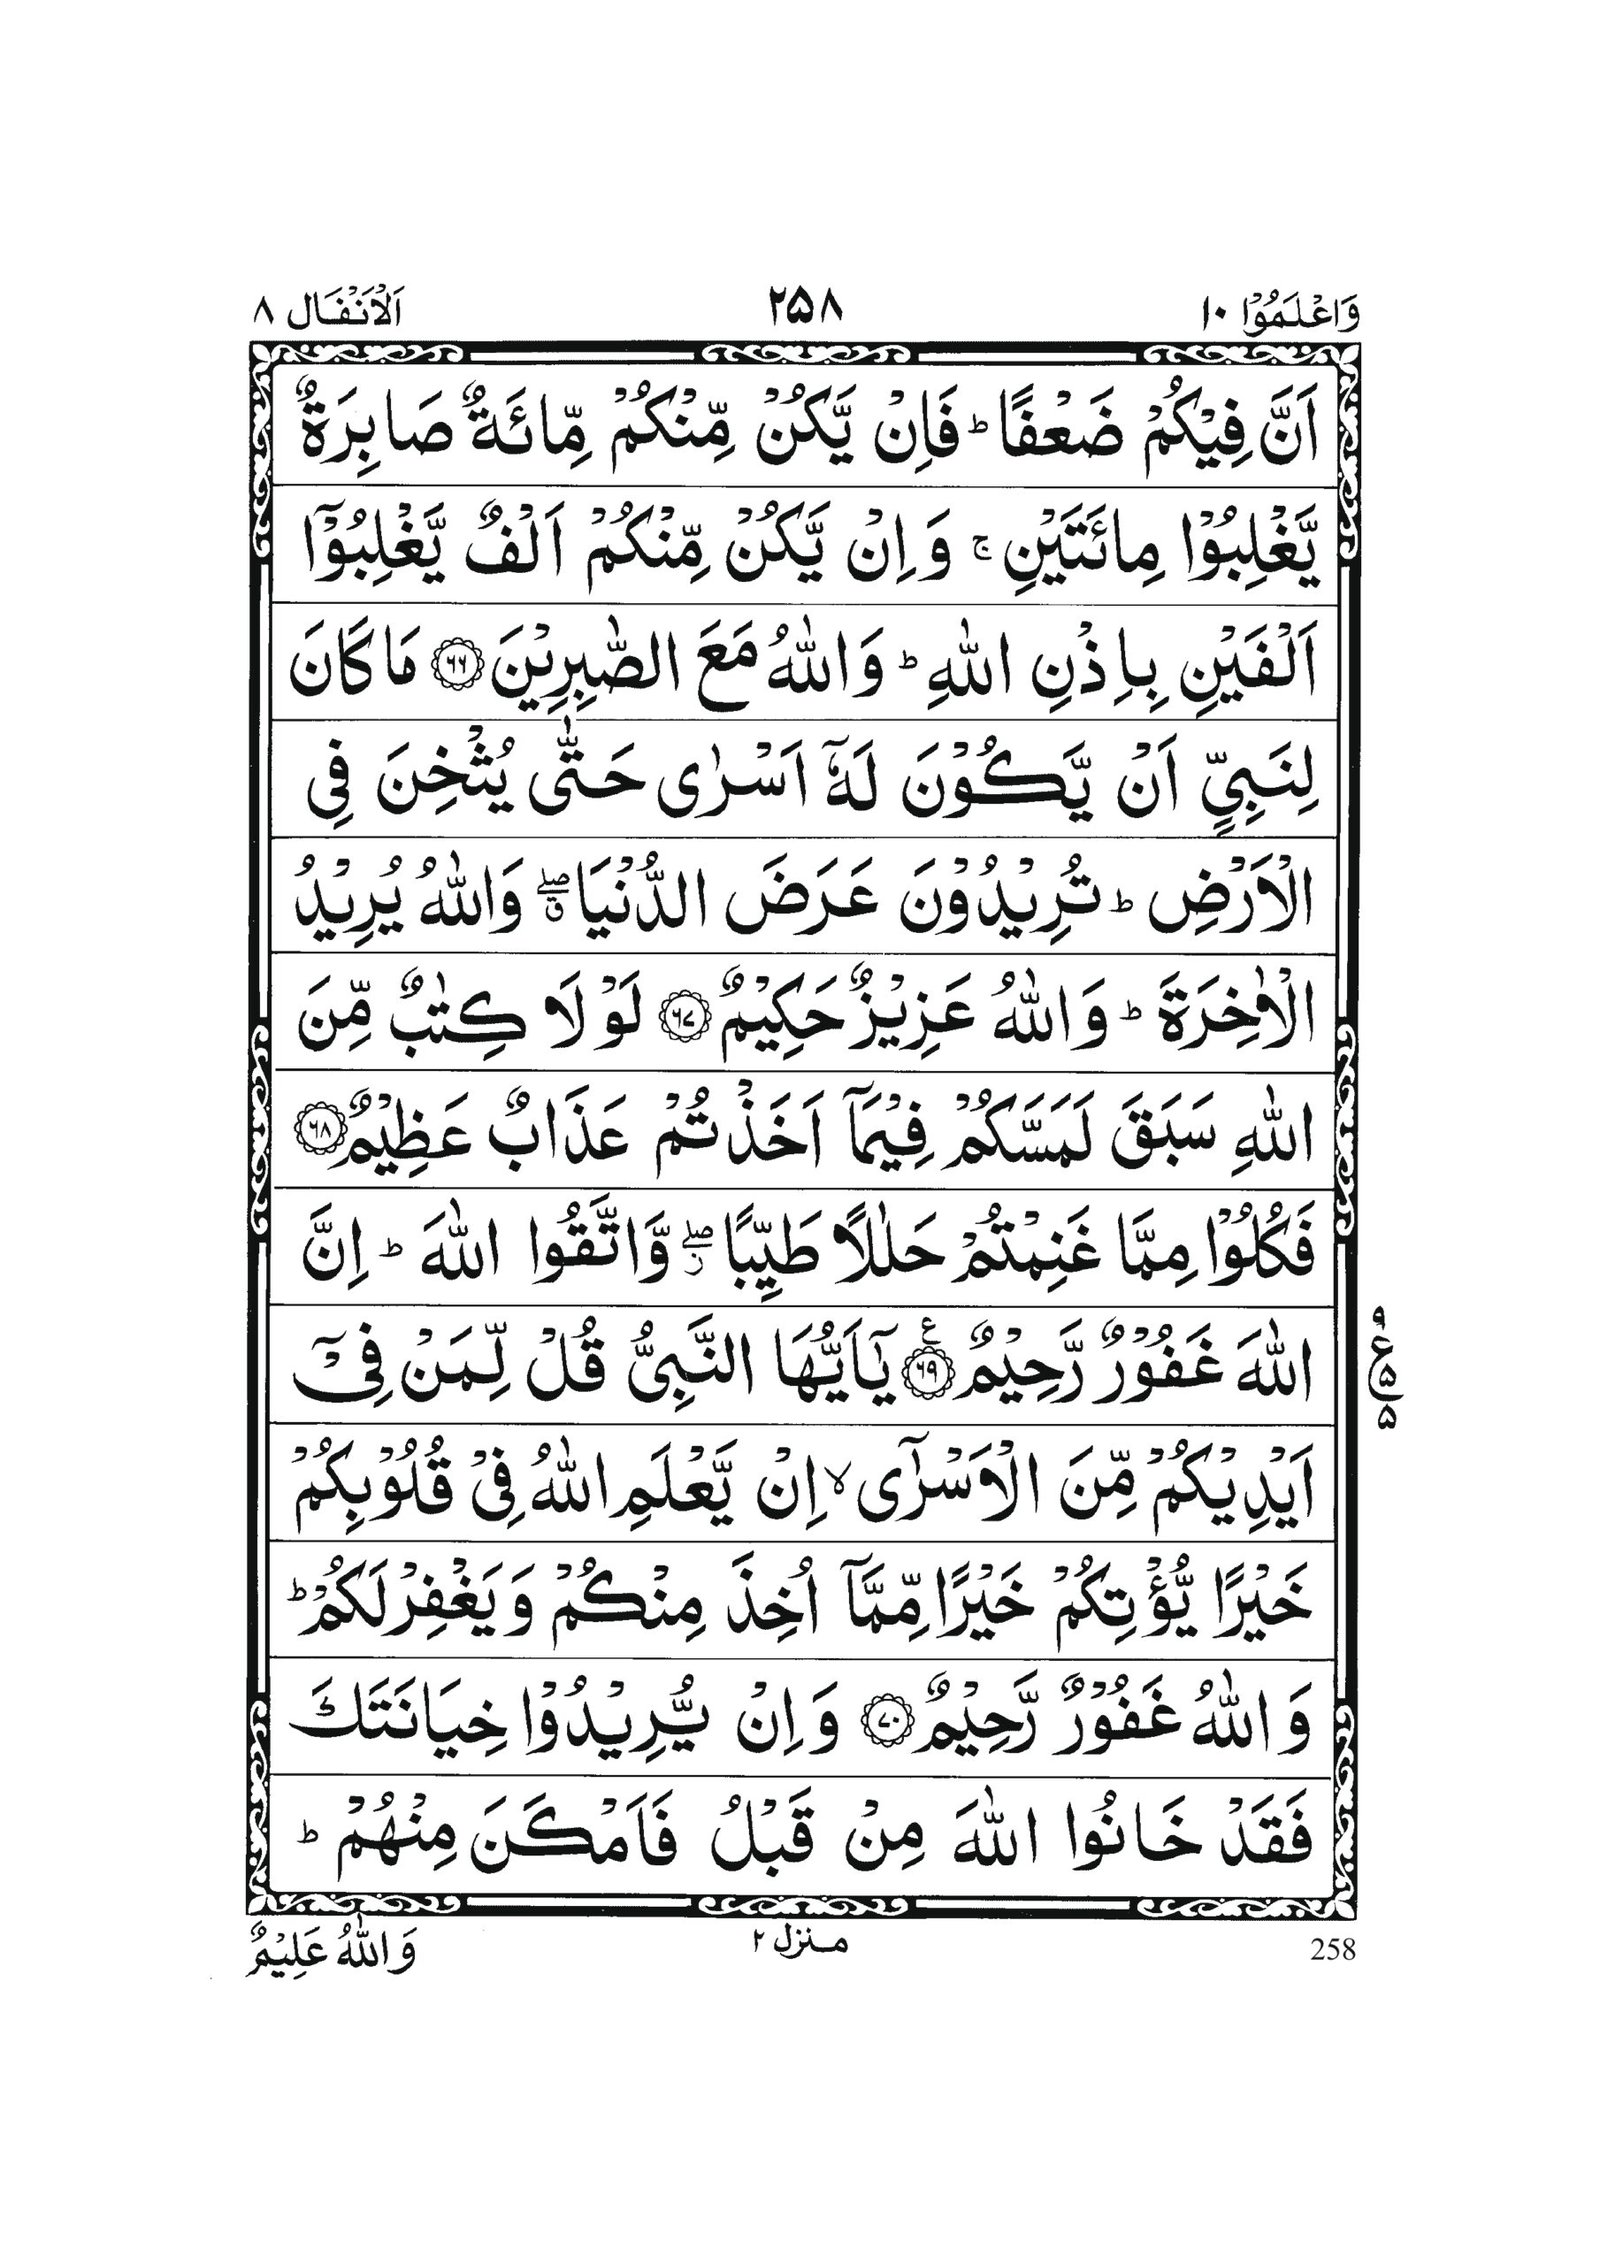 وَاعْلَمُوْٓا ۱۰
۲۵۸
اَلْاَنْفَال ۸
اَنَّ فِيْكُمْ ضَعْفًا ؕ فَاِنْ يَّكُنْ مِّنْكُمْ مِّائَةٌ صَابِرَةٌ
يَّغْلِبُوْا مِائَتَيْنِ ۚ وَاِنْ يَّكُنْ مِّنْكُمْ اَلْفٌ يَّغْلِبُوْٓا
اَلْفَيْنِ بِاِذْنِ اللّٰهِ ؕ وَاللّٰهُ مَعَ الصّٰبِرِيْنَ ۶۶ مَا كَانَ
لِنَبِيٍّ اَنْ يَّكُوْنَ لَهٗٓ اَسْرٰى حَتّٰى يُثْخِنَ فِى
الْاَرْضِ ؕ تُرِيْدُوْنَ عَرَضَ الدُّنْيَا ۖق وَاللّٰهُ يُرِيْدُ
الْاٰخِرَةَ ؕ وَاللّٰهُ عَزِيْزٌ حَكِيْمٌ ۶۷ لَوْ لَا كِتٰبٌ مِّنَ
اللّٰهِ سَبَقَ لَمَسَّكُمْ فِيْمَآ اَخَذْتُمْ عَذَابٌ عَظِيْمٌ ۶۸
فَكُلُوْا مِمَّا غَنِمْتُمْ حَلٰلًا طَيِّبًا ۖز وَّاتَّقُوا اللّٰهَ ؕ اِنَّ
اللّٰهَ غَفُوْرٌ رَّحِيْمٌ ۶۹ ع يٰٓاَيُّهَا النَّبِىُّ قُلْ لِّمَنْ فِىْٓ
اَيْدِيْكُمْ مِّنَ الْاَسْرٰٓى ۙ اِنْ يَّعْلَمِ اللّٰهُ فِىْ قُلُوْبِكُمْ
خَيْرًا يُّؤْتِكُمْ خَيْرًا مِّمَّآ اُخِذَ مِنْكُمْ وَيَغْفِرْ لَكُمْ ؕ
وَاللّٰهُ غَفُوْرٌ رَّحِيْمٌ ۷۰ وَاِنْ يُّرِيْدُوْا خِيَانَتَكَ
فَقَدْ خَانُوا اللّٰهَ مِنْ قَبْلُ فَاَمْكَنَ مِنْهُمْ ؕ
۹
ع ۵
۵
258
منزل ۲
وَاللّٰهُ عَلِيْمٌ